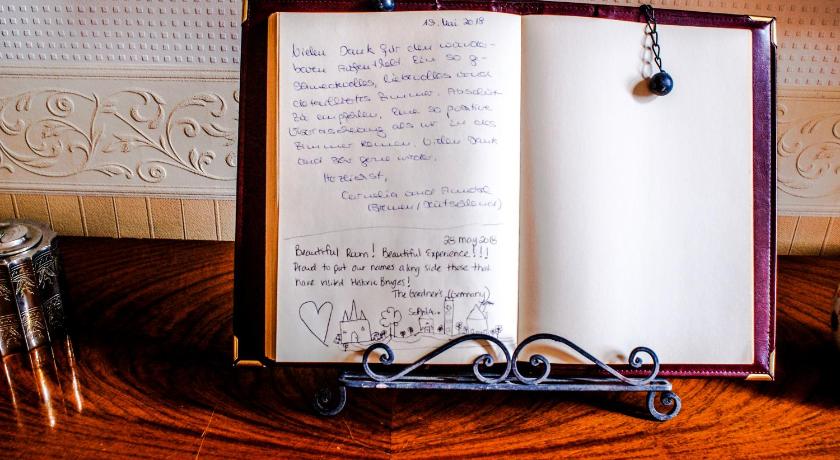 19. Mai 2018
Vielen Dank für den wunder-
baren Aufenthalt. Ein so ge-
schmackvolles, liebevolles und
detailliertes Zimmer. Absolut
zu empfehlen. Eine so positive
Überraschung als wir in das
Zimmer kamen. Vielen Dank
und sehr gerne wieder.
Herzlichst,
Cornelia und
(Bremen/Deutschland)
28 may 2018
Beautiful Room! Beautiful Experience!!!
Proud to put our names along side those that
have visited Historic Bruges!
The Gardner's (Germany)